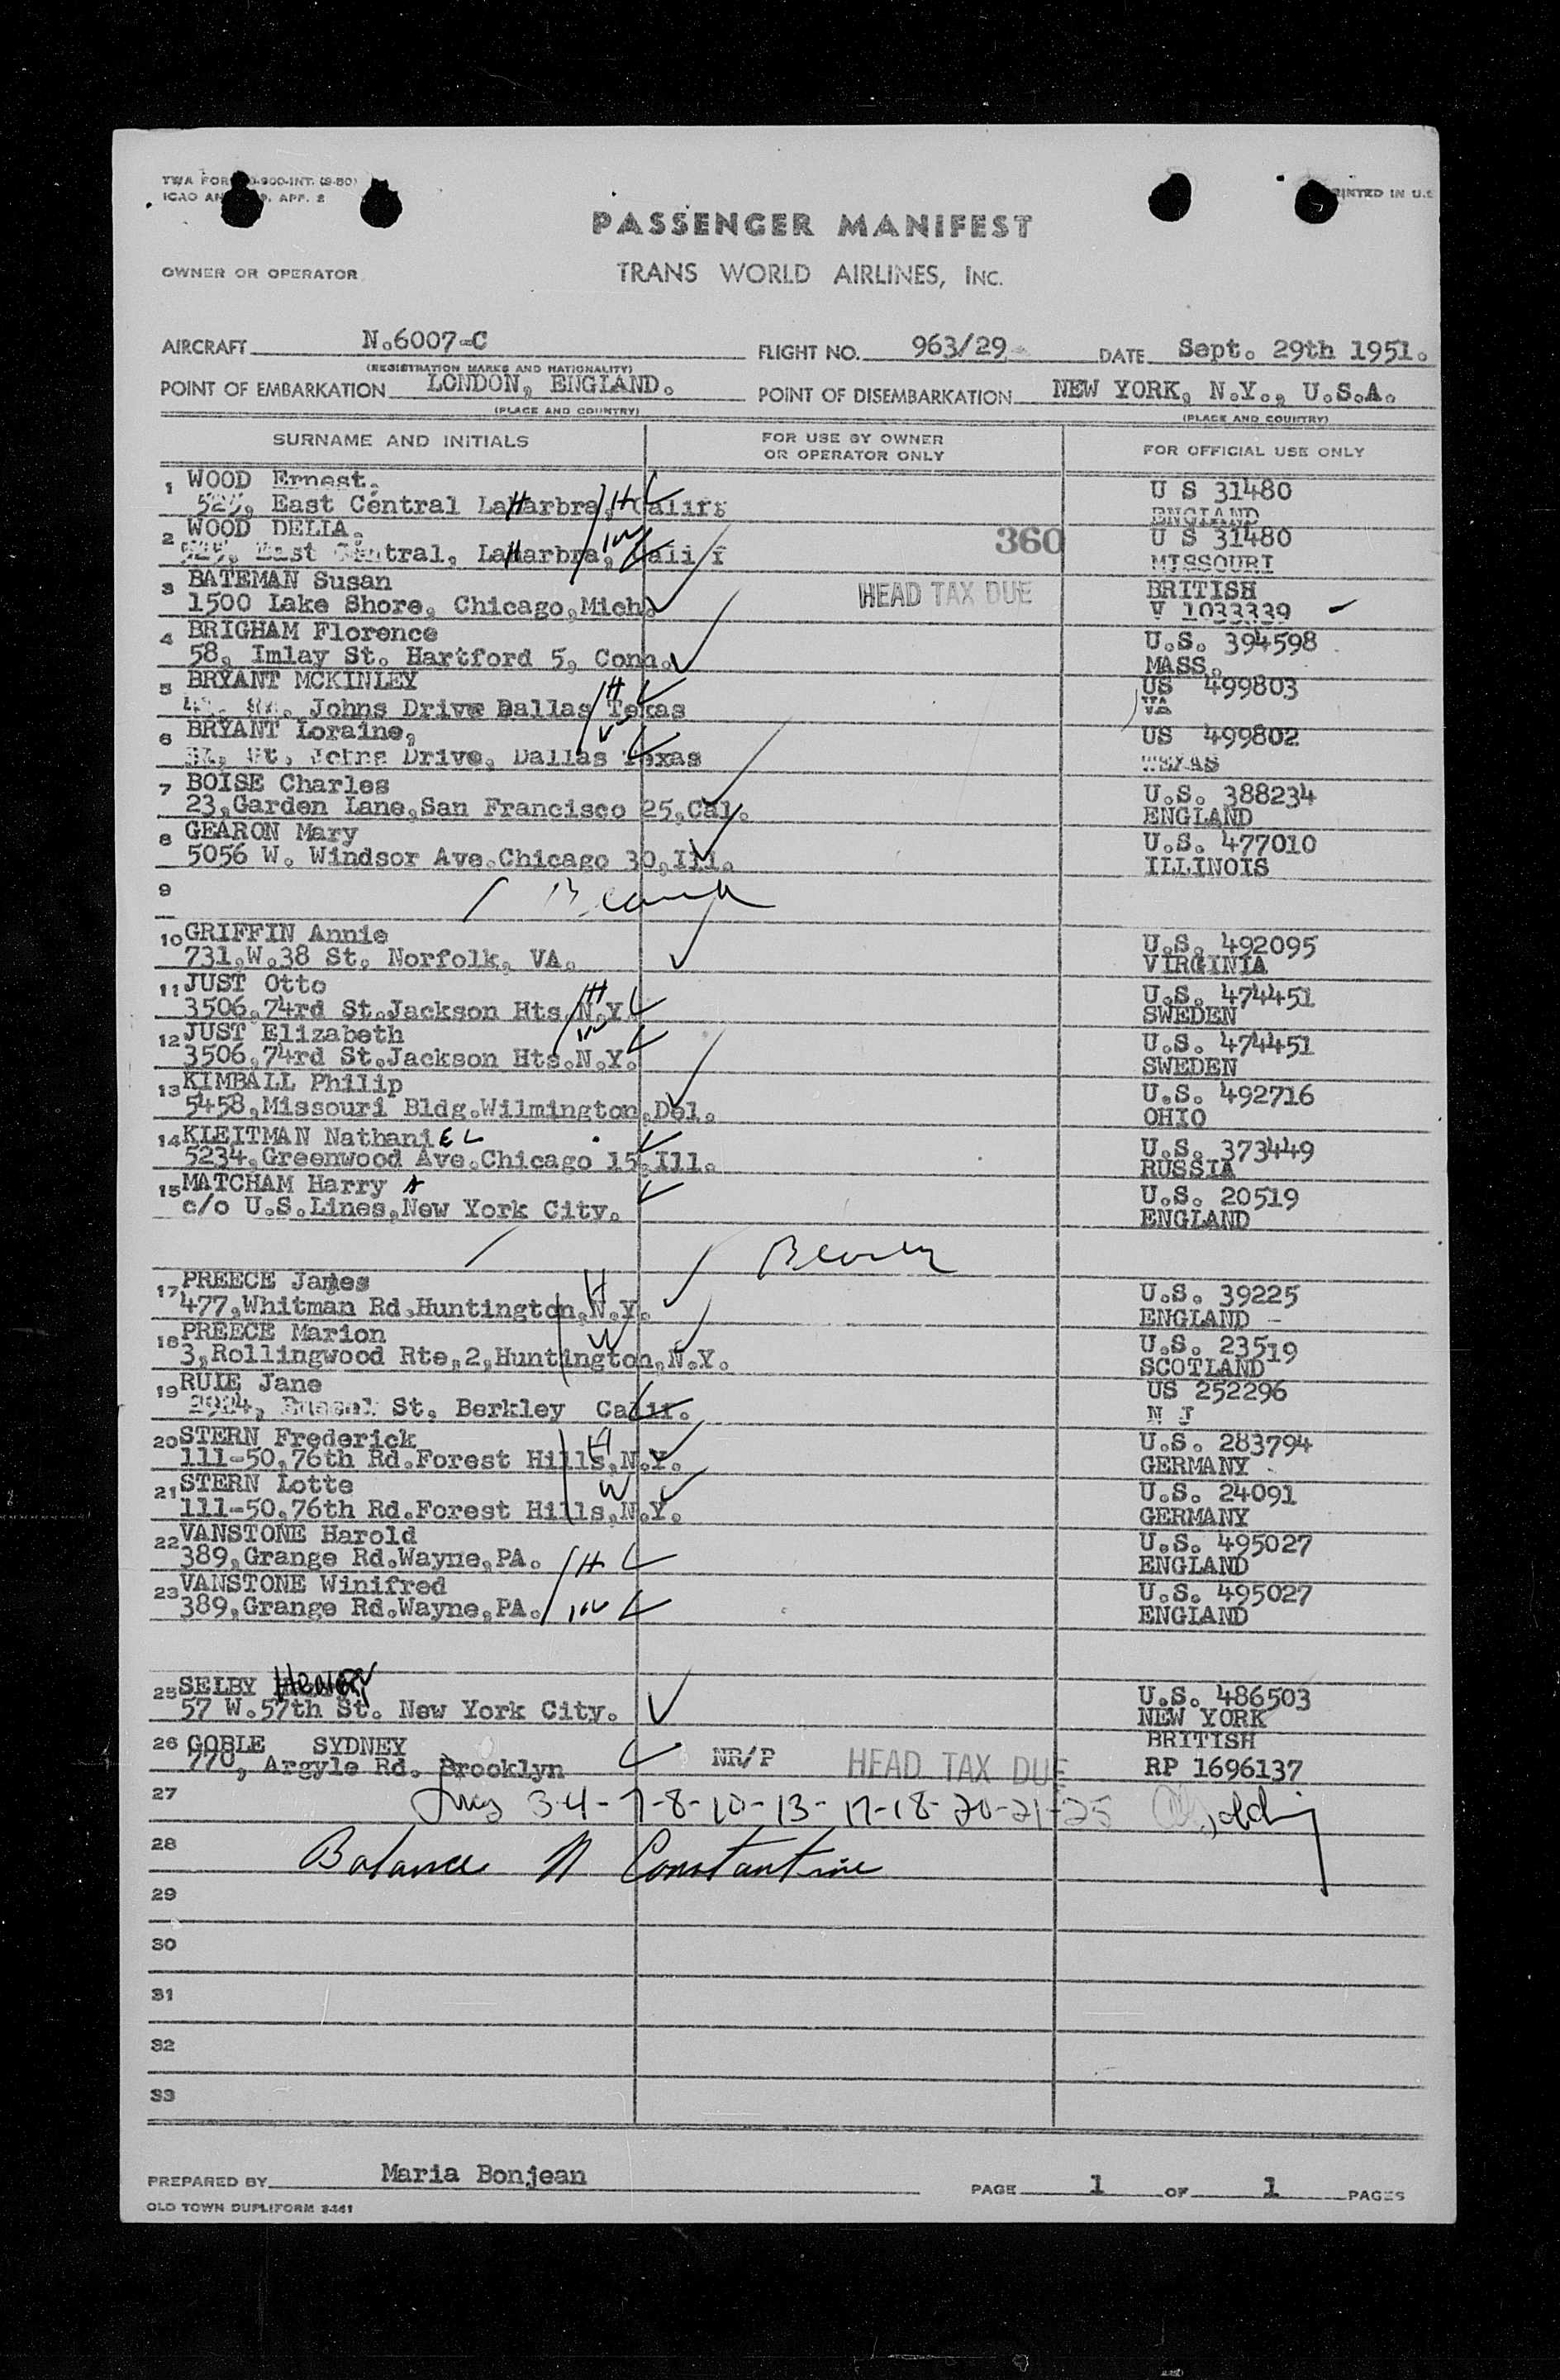 TWA FOR 900-INT. (9-50)
ICAO AN 9, APP. 2
PRINTED IN U.S
PASSENGER MANIFEST
OWNER OR OPERATOR TRANS WORLD AIRLINES, INC.
AIRCRAFT N.6007-C FLIGHT NO. 963/29 DATE Sept. 29th 1951.
(REGISTRATION MARKS AND NATIONALITY)
POINT OF EMBARKATION LONDON, ENGLAND. POINT OF DISEMBARKATION NEW YORK, N.Y., U.S.A.
(PLACE AND COUNTRY) (PLACE AND COUNTRY)
SURNAME AND INITIALS FOR USE BY OWNER OR OPERATOR ONLY FOR OFFICIAL USE ONLY
1 WOOD Ernest. U S 31480
525, East Central LaHarbra, H Calif ENGLAND
2 WOOD DELIA. W 360 U S 31480
525, East Central, LaHarbra, Calif MISSOURI
3 BATEMAN Susan HEAD TAX DUE BRITISH
1500 Lake Shore, Chicago,Mich. V 1033339
4 BRIGHAM Florence U.S. 394598
58, Imlay St. Hartford 5, Conn. MASS.
5 BRYANT MCKINLEY H US 499803
St. Johns Drive Dallas Texas VA
6 BRYANT Loraine, W US 499802
St. Johns Drive, Dallas Texas TEXAS
7 BOISE Charles U.S. 388234
23,Garden Lane,San Francisco 25,Cal. ENGLAND
8 GEARON Mary U.S. 477010
5056 W. Windsor Ave.Chicago 30,Ill. ILLINOIS
9 Blank
10 GRIFFIN Annie U.S. 492095
731,W.38 St. Norfolk, VA. VIRGINIA
11 JUST Otto H U.S. 474451
3506,74rd St.Jackson Hts.N.Y. SWEDEN
12 JUST Elizabeth W U.S. 474451
3506,74rd St.Jackson Hts.N.Y. SWEDEN
13 KIMBALL Philip U.S. 492716
5458,Missouri Bldg.Wilmington,Del. OHIO
14 KLEITMAN NathaniEL U.S. 373449
5234,Greenwood Ave.Chicago 15,Ill. RUSSIA
15 MATCHAM Harry A U.S. 20519
c/o U.S.Lines,New York City. ENGLAND
Blank
17 PREECE James H U.S. 39225
477,Whitman Rd.Huntington,N.Y. ENGLAND -
18 PREECE Marion W U.S. 23519
3,Rollingwood Rte,2,Huntington,N.Y. SCOTLAND
19 RULE Jane US 252296
2924, St. Berkley Calif. N J
20 STERN Frederick H U.S. 283794
111-50,76th Rd.Forest Hills,N.Y. GERMANY
21 STERN Lotte W U.S. 24091
111-50,76th Rd.Forest Hills,N.Y. GERMANY
22 VANSTONE Harold U.S. 495027
389,Grange Rd.Wayne,PA. H ENGLAND
23 VANSTONE Winifred U.S. 495027
389,Grange Rd.Wayne,PA. W ENGLAND
25 SELBY U.S. 486503
57 W.57th St. New York City. NEW YORK
26 GOBLE SYDNEY NR/P HEAD TAX DUE BRITISH
770, Argyle Rd. Brooklyn RP 1696137
27 3-4-7-8-10-13-17-18-20-21-25
28 Balance N Constantine
29
30
31
32
33
PREPARED BY Maria Bonjean PAGE 1 OF 1 PAGES
OLD TOWN DUPLIFORM 3441